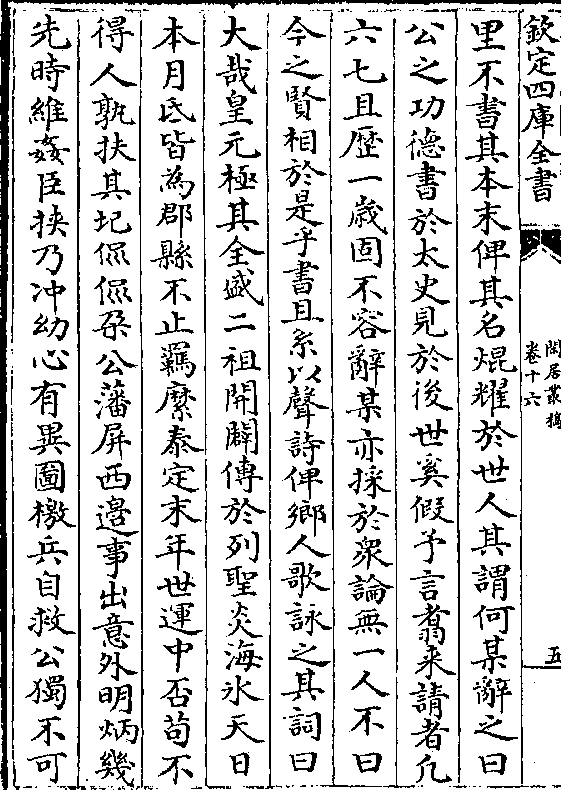 欽定四庫全書
閑居叢稿
卷十六
五
里不書其本末俾其名焜耀於世人其謂何某辭之曰
公之功德書於太史見於後世奚假予言翥来請者凡
六七且歴一歲固不容辭某亦採於衆論無一人不曰
今之賢相於是乎書且系以聲詩俾鄉人歌詠之其詞曰
大哉皇元極其全盛二祖開闢傳於列聖炎海氷天日
本月氐皆為郡縣不止羈縻泰定末年世運中否苟不
得人孰扶其圮侃侃朶公藩屏西邉事出意外明炳幾
先時維姦臣挟乃冲幼心有異圖檄兵自救公獨不可